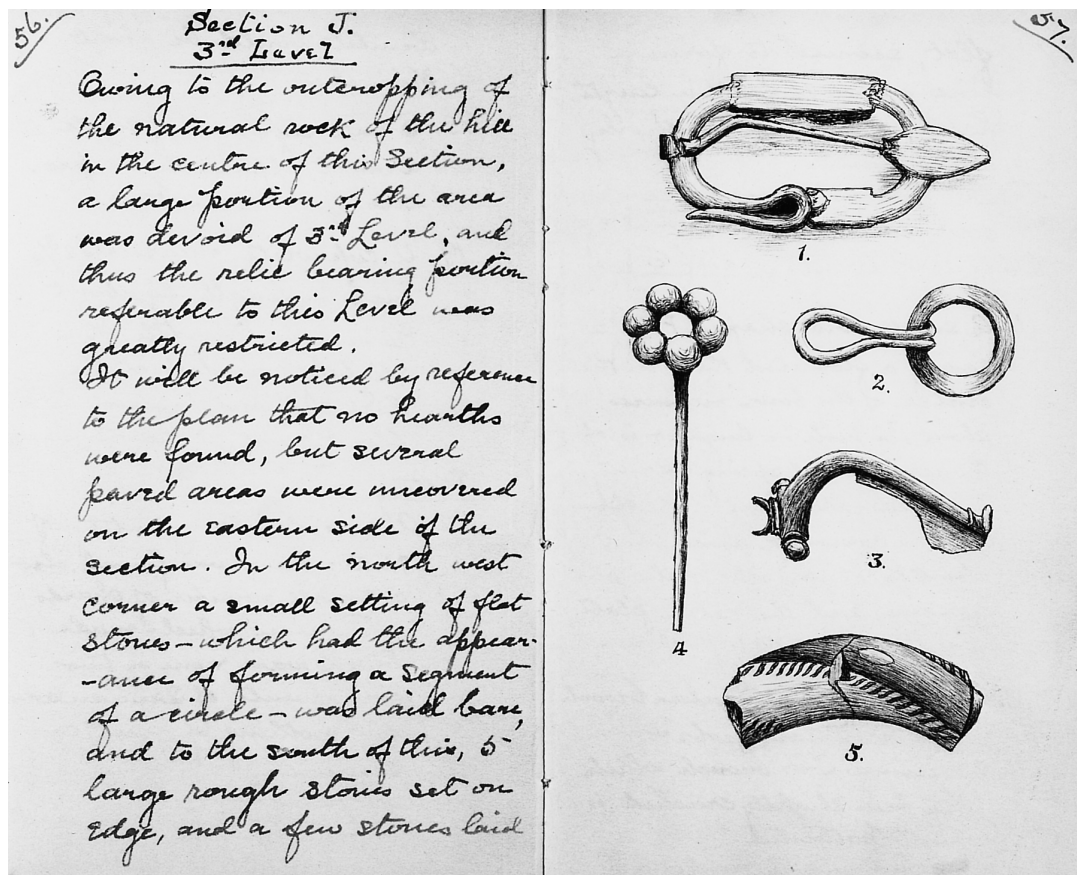 56.
Section J.
3rd Level
Owing to the outcropping of
the natural rock of the hill
in the centre of this Section,
a large portion of the area
was devoid of 3rd Level, and
thus the relic bearing portion
referable to this Level was
greatly restricted.
It will be noticed by reference
to the plan that no hearths
were found, but several
paved areas were uncovered
on the eastern side of the
section. In the north west
corner a small setting of flat
stones – which had the appear-
-ance of forming a segment
of a circle – was laid bare,
and to the south of this, 5
large rough stones set on
edge, and a few stones laid
57.
1.
2.
3.
4
5.